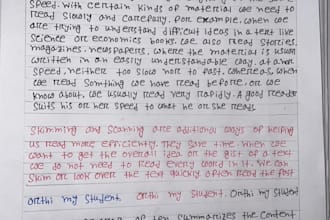 speed. With certain kinds of material we need to
read slowly and carefully. For example, when we
are trying to understand difficult ideas in a text like
science or economics books. We also read stories,
magazines, newspapers, where the material is usual
written in an easily understandable way, at a nor
speed, neither too slow nor to fast. Whereas, when
we read something we have read before, or we
know about, we usually read very rapidly. A good reader
suits his or her speed to what he or she reads.
Skimming and scanning are additional ways of helping
us read more efficiently. They save time. When we
want to get the overall idea or the gist of a text
we do not need to read every word in it. We can
skim or look over the text quickly often read the first
orthi my student orthi my student. Orthi my student
summarizes the content